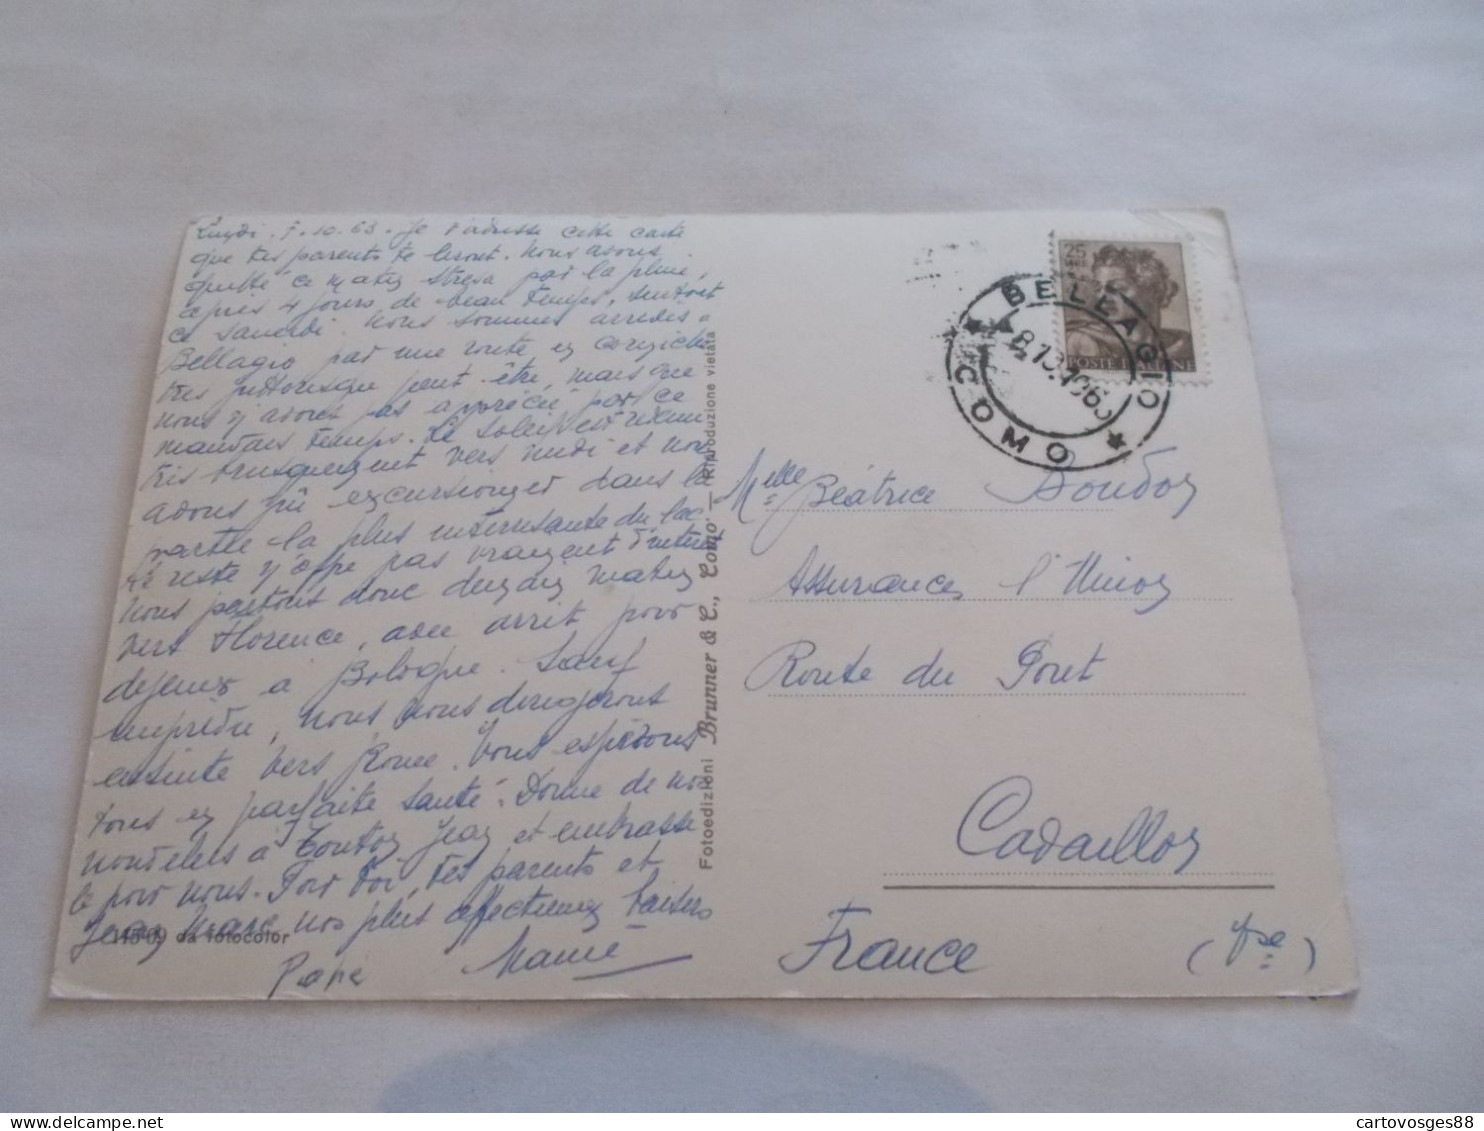 Lundi. 7.10.63. Je t'adresse cette carte
que tes parents te liront. Nous avons
quitté ce matin Stresa par la pluie,
après 4 jours de beau temps, surtout
ce samedi. Nous sommes arrivés à
Bellagio par une route en corniche
très pittoresque peut être, mais que
nous n'avons pas apprécié par ce
mauvais temps. Le soleil est revenu
très brusquement vers midi et nous
avons pû excursionner dans la
partie la plus intéressante du lac.
Le reste n'offre pas vraiment d'intérêt
Nous partons donc demain matin
vers Florence, avec arrêt pour
déjeuner à Bologne. Sauf
imprévu, nous nous dirigerons
ensuite vers Rome. Vous espérons
tous en parfaite santé. Donne de nos
nouvelles à Tonton Jean et embrasse
le pour nous. Pour toi, tes parents et
Jean Marc nos plus affectueux baisers
Papé Mamé
115-09 da fotocolor
Fotoedizioni Brunner & C., Como - Riproduzione vietata
25
POSTE ITALIANE
BELLAGIO
COMO
Melle Béatrice
Assurances l'Union
Route du Pont
Cadaillos
France